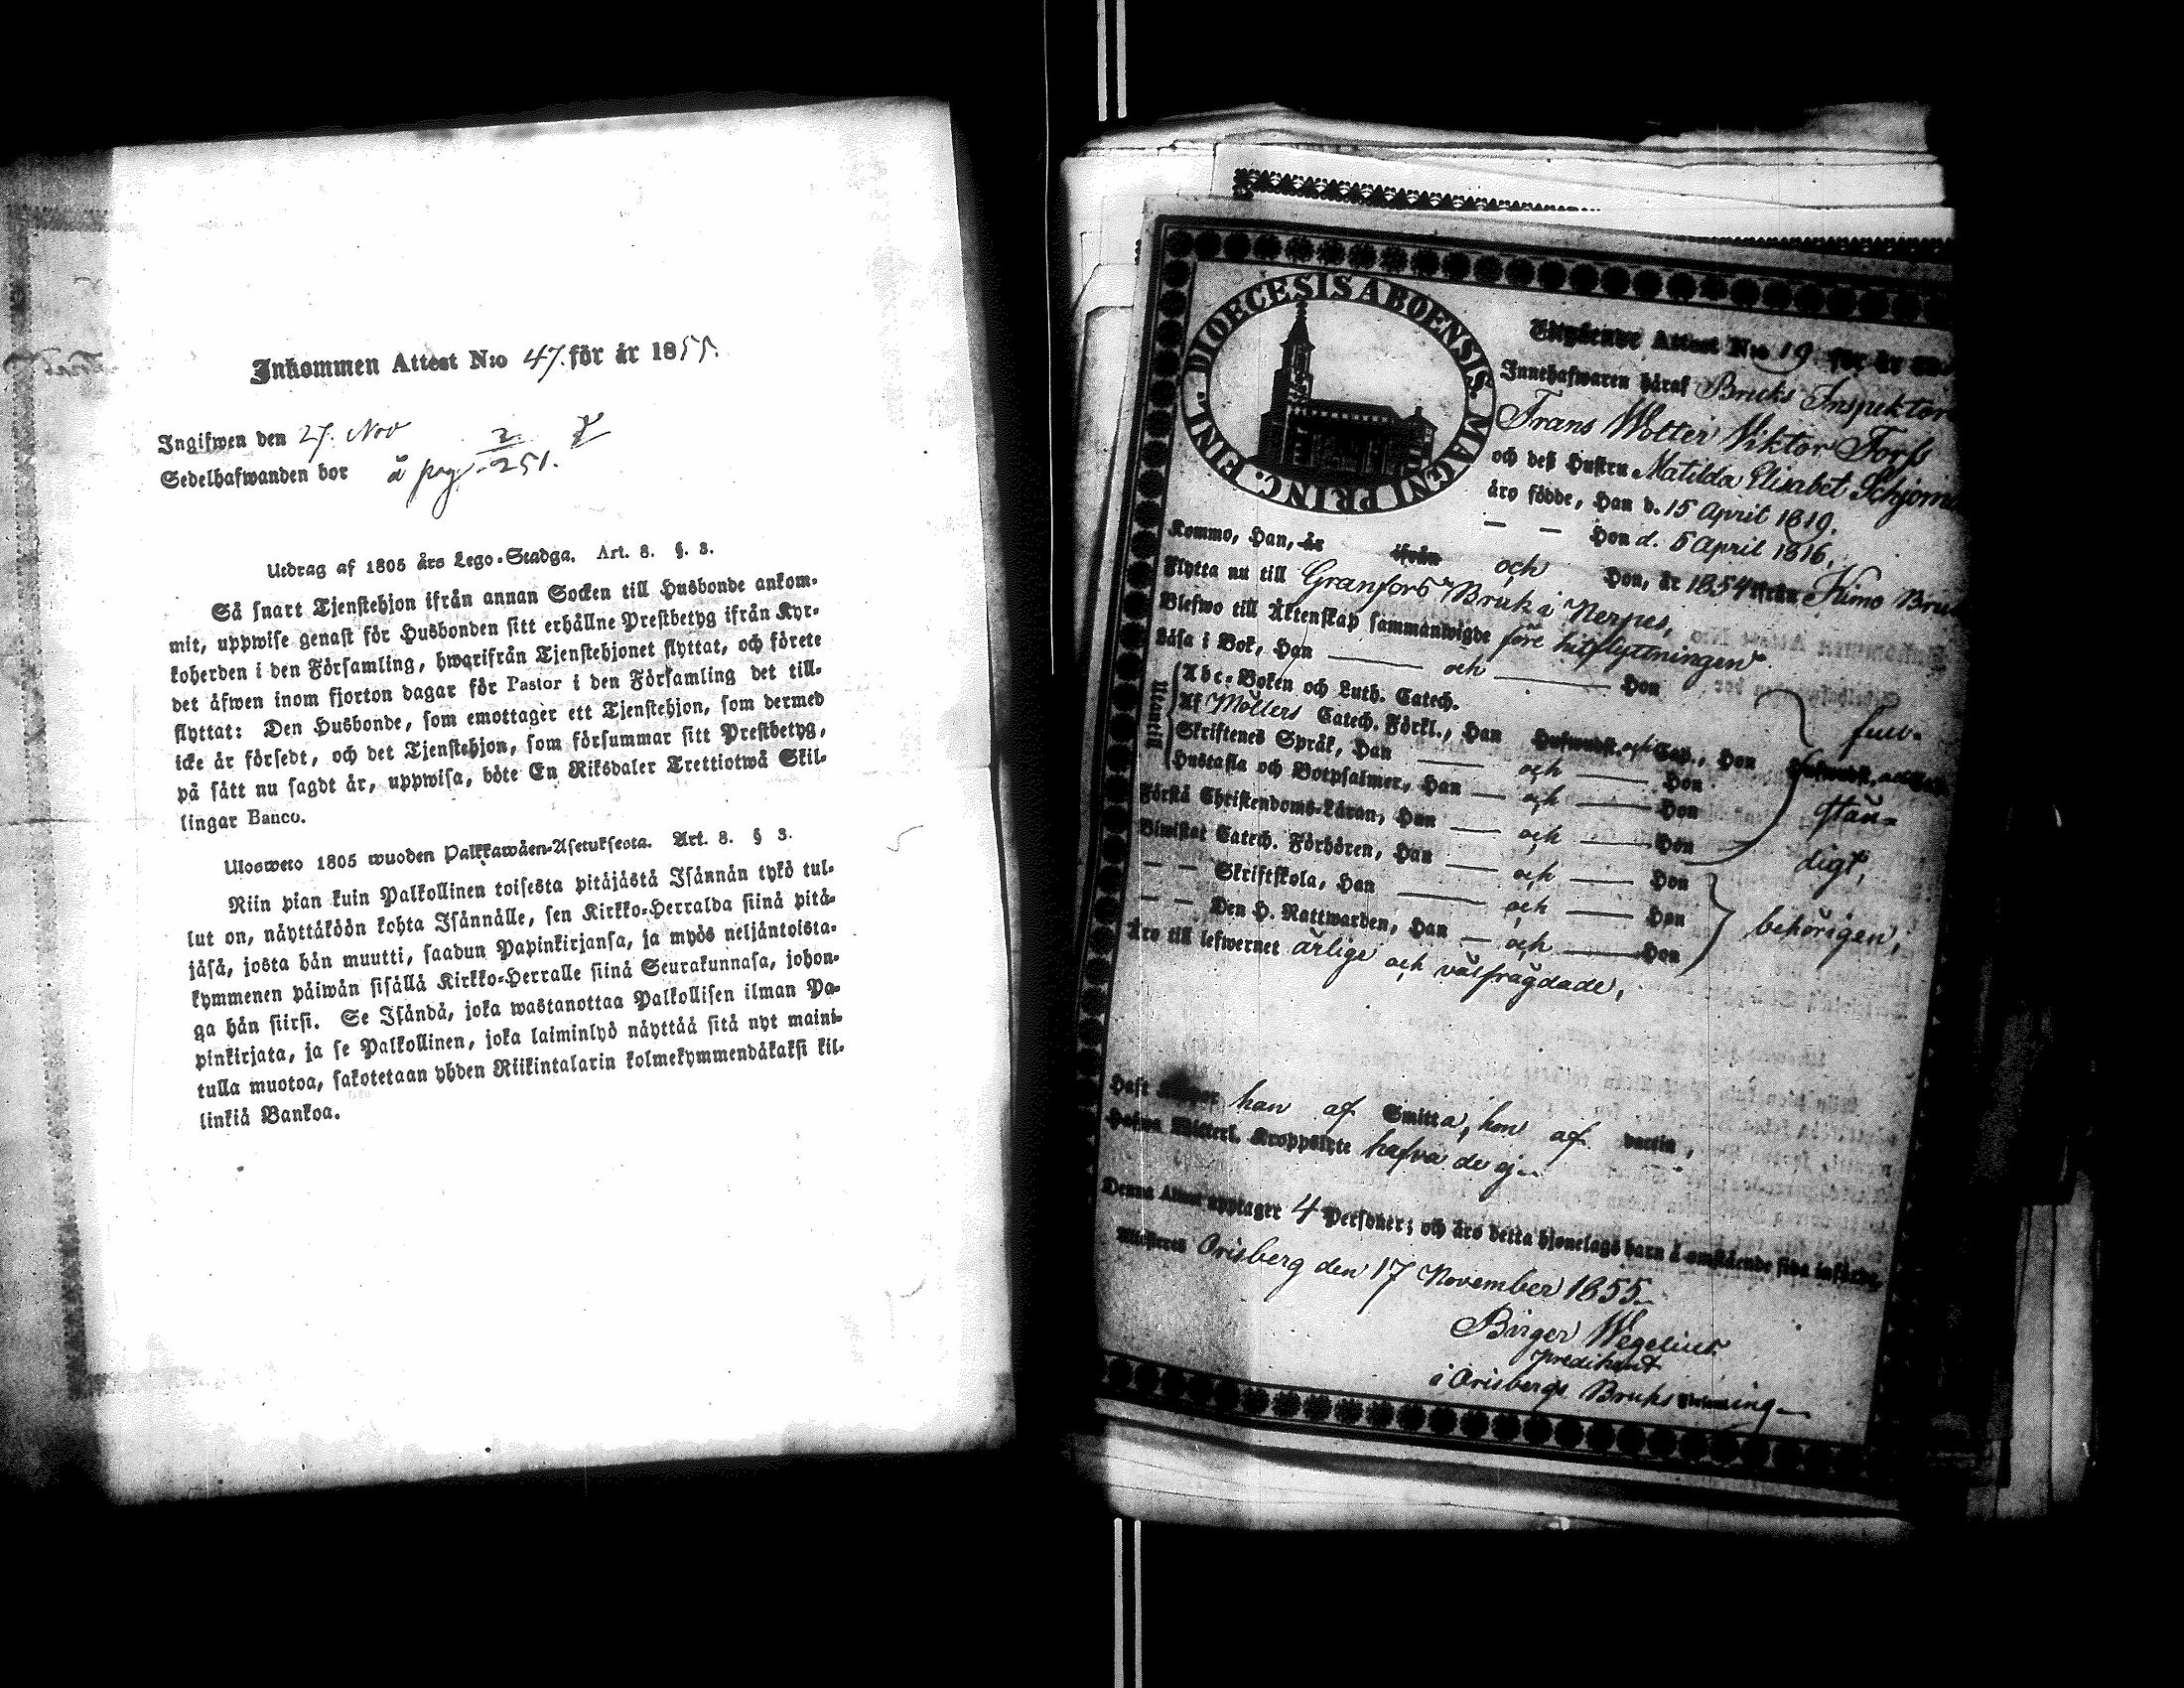 Inkommen Attest N:o 47. för år 1855.
Ingifwen den 27. Nov
Sedelhafwanden bor å pag. 2/251.
Utdrag af 1805 års Lego-Stadga. Art. 8. §. 3.
Så snart Tjenstehjon ifrån annan Socken till Husbonde ankom-
mit, uppwise genast för Husbonden sitt erhållne Prestbetyg ifrån Kyr-
koherden i den Församling, hwarifrån Tjenstehjonet flyttat, och förete
det äfwen inom fjorton dagar för Pastor i den Församling det till-
flyttat: Den Husbonde, som emottager ett Tjenstehjon, som dermed
icke är försedt, och det Tjenstehjon, som försummar sitt Prestbetyg,
på sätt nu sagdt är, uppwisa, böte En Riksdaler Trettiotwå Skil-
lingar Banco.
Ulosweto 1805 wuoden Palkkawäen-Asetuksesta. Art. 8. § 3.
Niin pian kuin Palkollinen toisesta pitäjästä Isännän tykö tul-
lut on, näyttäköön kohta Isännälle, sen Kirkko-Herralda siinä pitä-
jäsä, josta hän muutti, saadun Papinkirjansa, ja myös neljäntoista-
kymmenen päiwän sisällä Kirkko-Herralle siinä Seurakunnasa, johon-
ga hän siirsi. Se Isändä, joka wastanottaa Palkollisen ilman Pa-
pinkirjata, ja se Palkollinen, joka laiminlyö näyttää sitä nyt maini-
tulla muotoa, sakotetaan yhden Riikintalarin kolmekymmendäkaksi kil-
linkiä Bankoa.
DIOECESIS ABOENSIS. MAGNI PRINC. FINL.
Utgående Attest N:o 19 för år
Innehafwaren häraf Bruks Inspektor
Frans Wolter Viktor Forß
och deß Hustru Matilda Elisabet
äro födde, Han d. 15 April 1819.
— — Hon d. 5 April 1816,
Kommo, Han, är ifrån och Hon, år 1854 ifrån Kimo
Flytta nu till Granfors Bruk i Nerpes,
Blefwo till Äktenskap sammanwigde före hitflyttningen.
Läsa i Bok, Han — och — Hon
Utantill
Abc-Boken och Luth. Catech.
Af Möllers Catech. Förkl., Han Hufwudst. och Cap., Hon Hufwudst. och
Skriftenes Språk, Han — och — Hon
Hustafla och Botpsalmer, Han — och — Hon
Förstå Christendoms-Läran, Han — och — Hon
full-
stän-
digt,
Biwistat Catech. Förhören, Han — och — Hon
— — Skriftskola, Han — och — Hon
— — Den H. Nattwarden, Han — och — Hon
behörigen,
Äro till lefwernet ärlige och välfrägdade,
Haft han af Smitta, hon af vaccin,
Hafwa Kroppslyte hafva de ej.
Denna Attest upptager 4 Personer; och äro detta hjonelags barn å omstående sida införde,
Orisberg den 17 November 1855.
Birger Wegelius
predikant
i Orisbergs Bruks